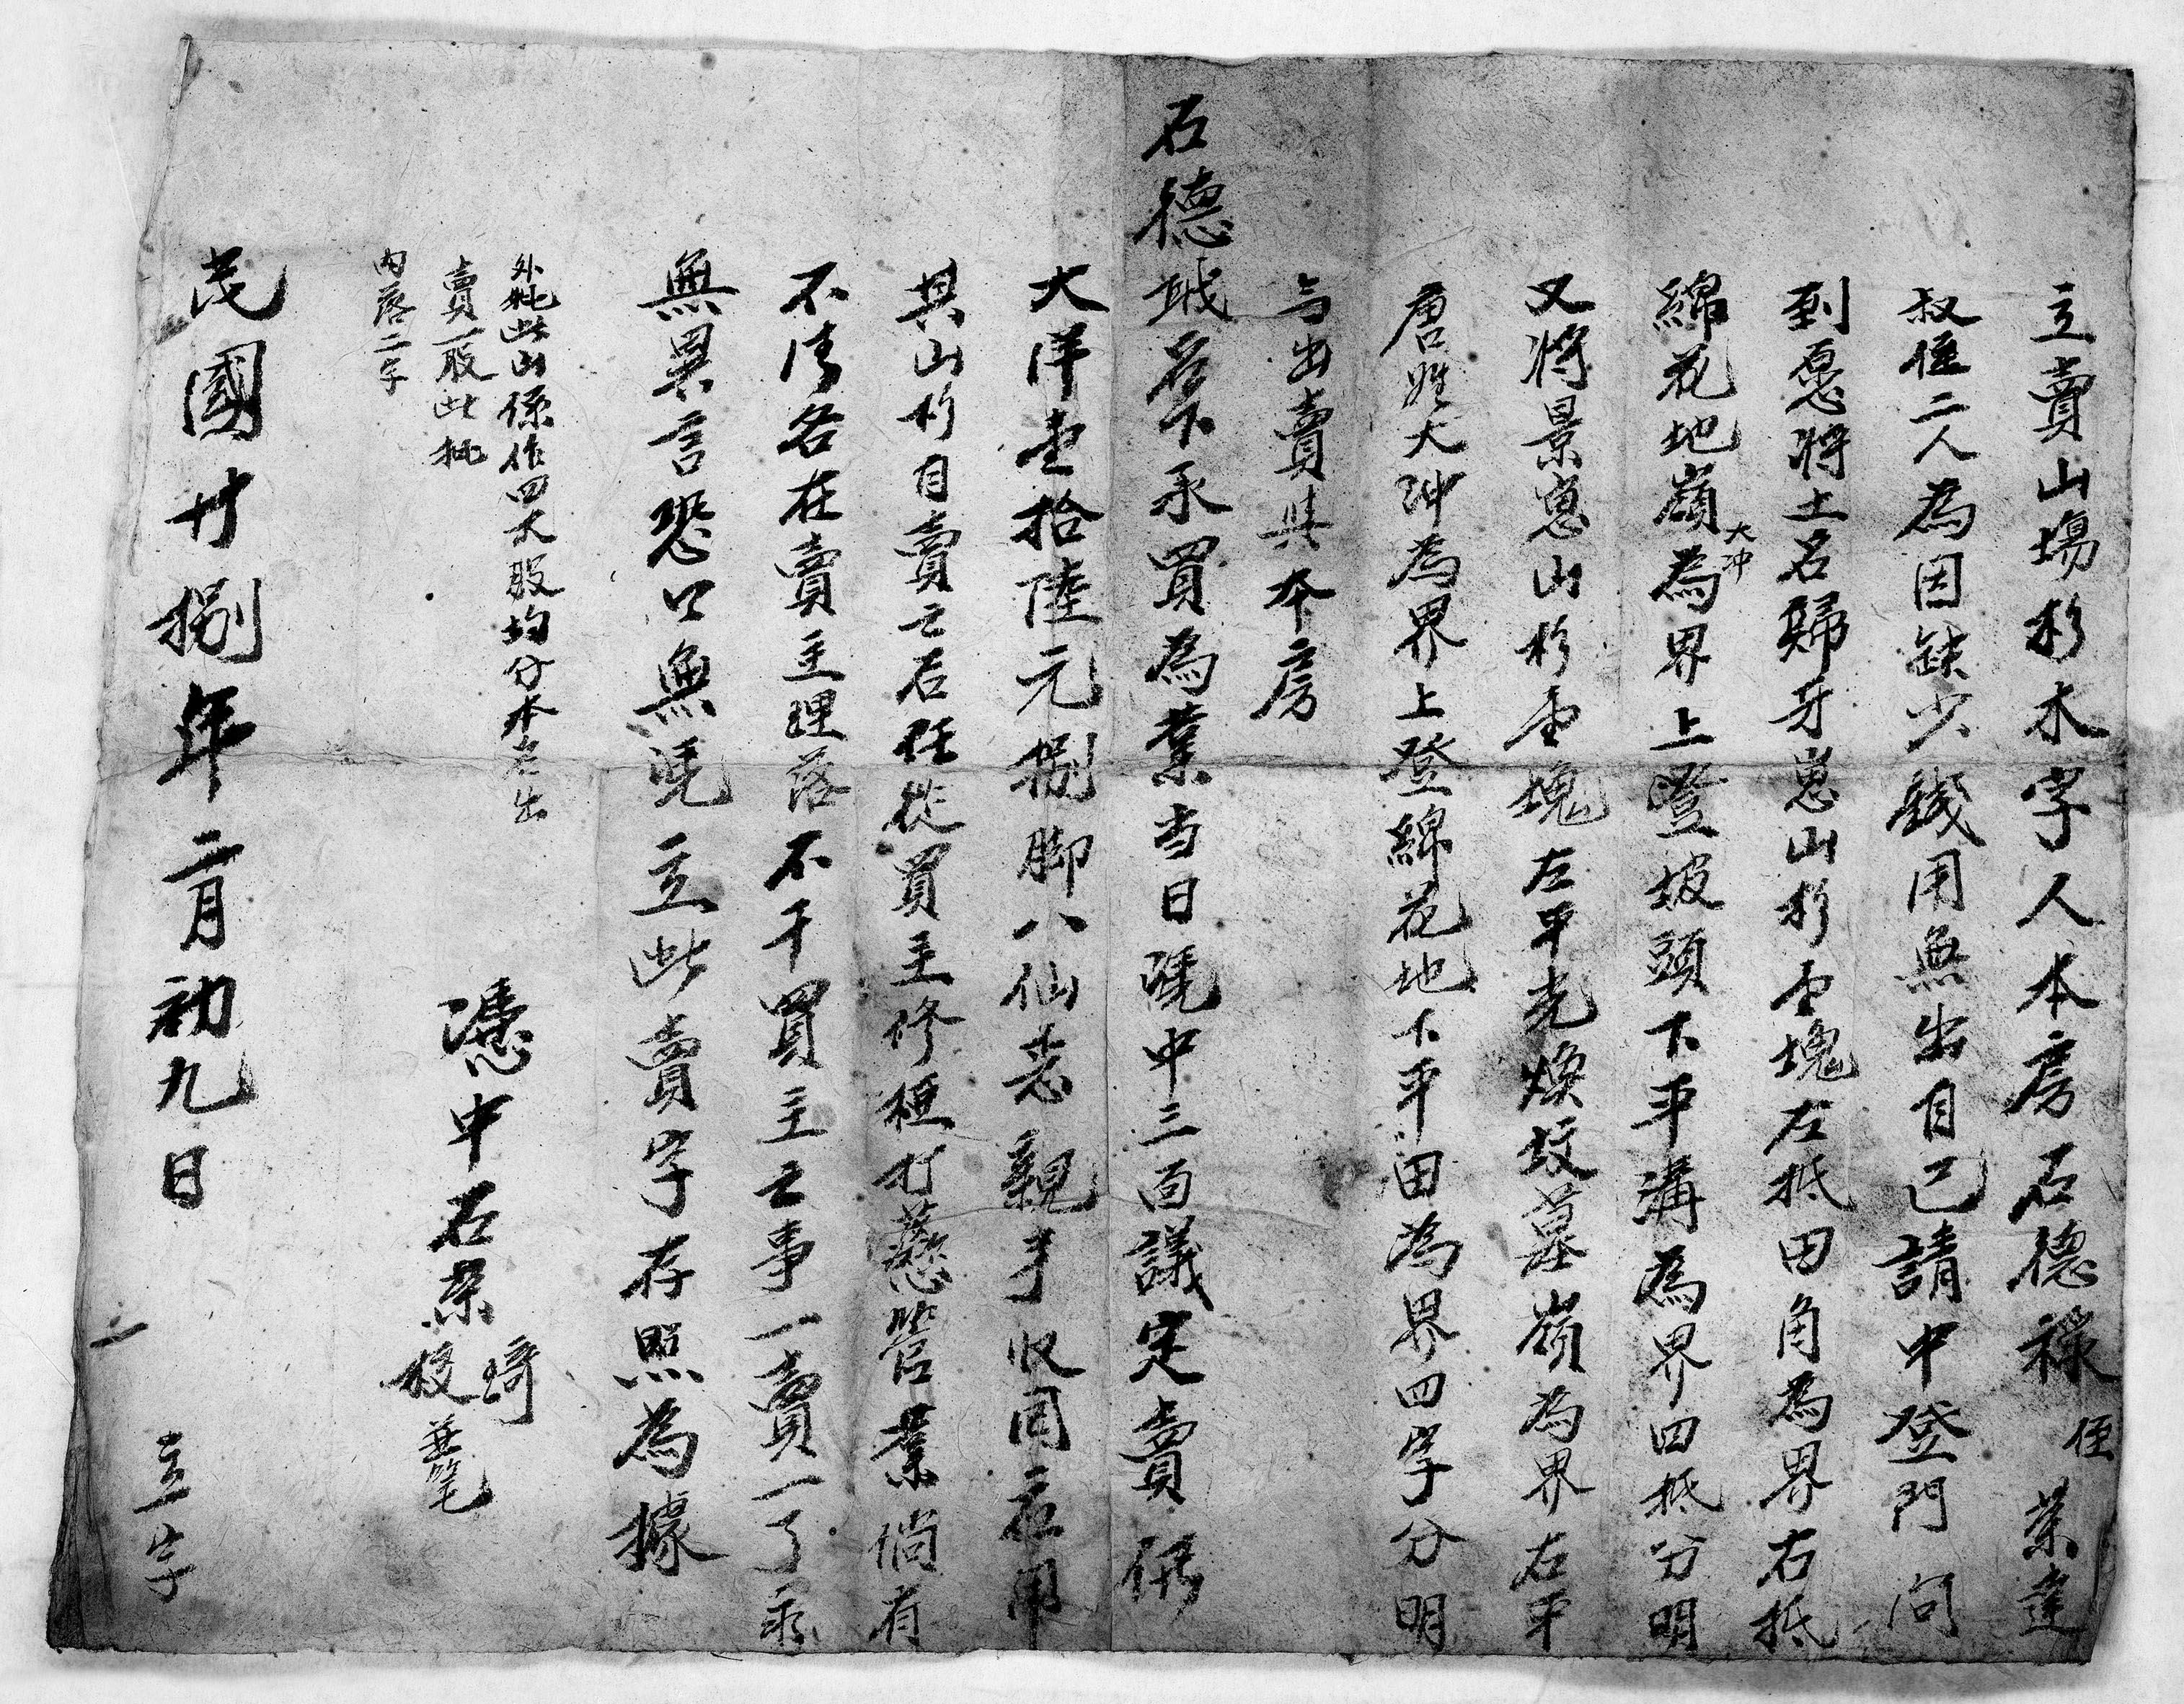 立賣山塲杉木字人本房石德禄侄荣達
叔侄二人為因缺少錢用無出自己請中登門問
到愿將土名歸牙崽山杉壹塊左抵田角為界右抵
綿花地嶺大冲為界上登坡頭下平溝為界四抵分明
又將景崽山杉壹塊左平光煥坟墓嶺為界右平
唐姓大冲為界上登綿花地下平田為界四字分明
与出賣其本房
石德城名下承買為業当日凴中三面議定賣價
大洋壹拾陸元捌脚八仙老親手收用在用
其山杉自賣之后任從買主修極打蔸管業倘有
不清各在賣主理落不干買主之事一賣一了承
無異言恐口無凴立此賣字存照為據
外批此山係作四大股均分本名出
賣一股此批
内落二字
憑中石荣
琦
校
兼笔
民國廿捌年二月初九日 立字